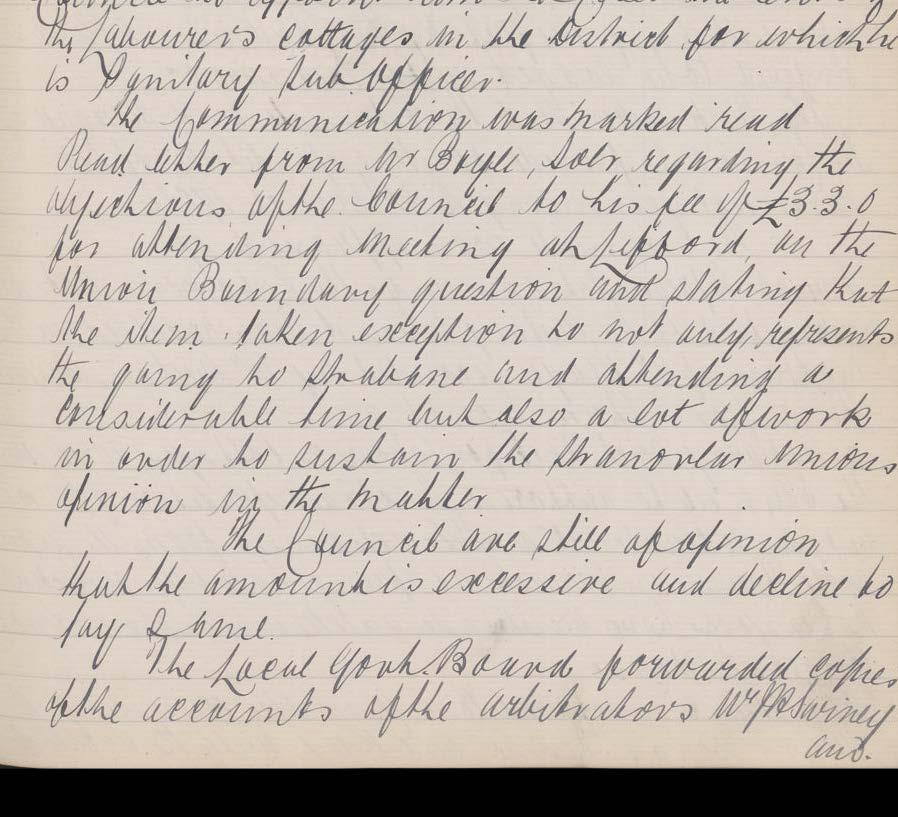 the Labourers cottages in the District for which he
is Sanitary Sub Officer.
The Communication was marked read
Read letter from Mr Boyle, Solr regarding the
objections of the Council to his fee of £3.3.0
for attending meeting at Lifford, on the
Union Boundary question and stating that
the item taken exception to not only, represents
the going to Strabane and attending a
considerable time but also a lot of work
in order to sustain the Stranorlar Unions
opinion in the matter
The Council are still of opinion
that the amount is excessive and decline to
pay same.
The Local Govt. Board forwarded copies
of the accounts of the arbitrators Mr Swiney
and.